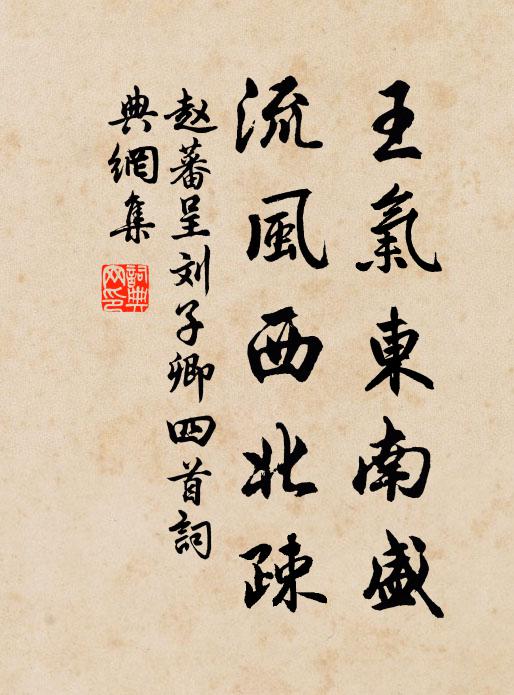 王氣東南盛
流風西北疎
赵蕃呈刘子卿四首詞
典網集
詞典
网印